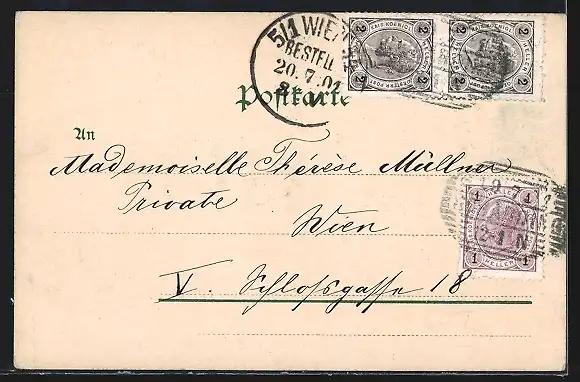 5/1 WIEN
BESTELL
20.7.01
2 KAIS. KOENIGL. 2
2 HELLER 2
2 KAIS. KOENIGL. 2
2 HELLER 2
Postkarte
An
Mademoiselle Thérèse Müllner
Private
Wien
V. Schlossgasse 18
1 1
2-1 N
1 HELLER 1